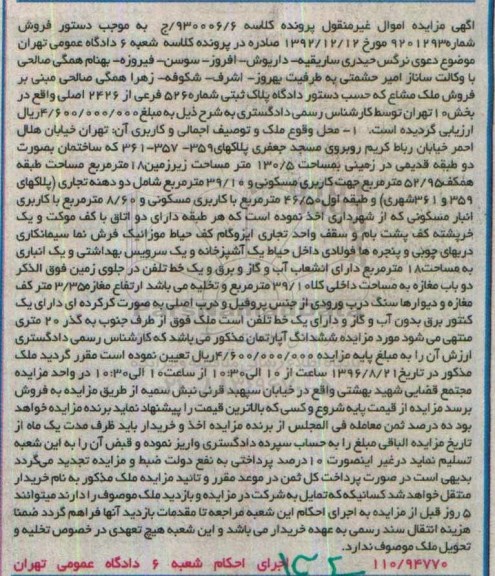 آگهی مزایده اموال غیرمنقول پرونده کلاسه ۹۳۰۰۰۶/۶/ج به موجب دستور فروش
شماره۹۲۰۱۲۹۳ مورخ ۱۳۹۲/۱۲/۱۲ صادره در پرونده کلاسه شعبه ۶ دادگاه عمومی تهران
موضوع دعوی نرگس حیدری ساریقیه- داریوش- افروز- سوسن- فیروزه- بهنام همگی صالحی
با وکالت ساناز امیر حشمتی به طرفیت بهروز- اشرف- شکوفه- زهرا همگی صالحی مبنی بر
فروش ملک مشاع که حسب دستور دادگاه پلاک ثبتی شماره۵۲۶ فرعی از ۲۴۲۶ اصلی واقع در
بخش۱۰ تهران توسط کارشناس رسمی دادگستری به شرح ذیل به مبلغ۴/۶۰۰/۰۰۰/۰۰۰ریال
ارزیابی گردیده است. ۱- محل وقوع ملک و توصیف اجمالی و کاربری آن: تهران خیابان هلال
احمر خیابان رباط کریم روبروی مسجد جعفری پلاکهای۳۵۹- ۳۵۷-۳۶۱ که ساختمان بصورت
دو طبقه قدیمی در زمینی بمساحت ۱۳۰/۵ متر مساحت زیرزمین۱۸مترمربع مساحت طبقه
همکف۵۲/۹۵ مترمربع جهت کاربری مسکونی و ۳۹/۱۰ مترمربع شامل دو دهنه تجاری (پلاکهای
۳۵۹ و ۳۶۱شهری) و طبقه اول۴۶/۵۰ مترمربع با کاربری مسکونی و ۸/۶۰ مترمربع با کاربری
انبار مسکونی که از شهرداری اخذ نموده است که هر طبقه دارای دو اتاق با کف موکت و یک
خرپشته کف پشت بام و سقف واحد تجاری ایزوگام کف حیاط موزائیک فرش نما سیمانکاری
دربهای چوبی و پنجره ها فولادی داخل حیاط یک آشپزخانه و یک سرویس بهداشتی و یک انباری
به مساحت۱۸ مترمربع دارای انشعاب آب و گاز و برق و یک خط تلفن در جلوی زمین فوق الذکر
دو باب مغازه به مساحت داخلی کلا۳۹/۱۰ مترمربع و تخلیه می باشد ارتفاع مغازه۳/۳۵ متر کف
مغازه و دیوارها سنگ درب ورودی از جنس پروفیل و درب اصلی به صورت کرکره ای دارای یک
کنتور برق بدون آب و گاز و دارای یک خط تلفن است ملک فوق از طرف جنوب به گذر ۲۰ متری
منتهی می شود مورد مزایده ششدانگ آپارتمان مذکور می باشد که کارشناس رسمی دادگستری
ارزش آن را به مبلغ پایه مزایده ۴/۶۰۰/۰۰۰/۰۰۰ریال تعیین نموده است مقرر گردید ملک
مذکور در تاریخ۱۳۹۶/۸/۲۱ از ساعت ۱۰ الی۱۰:۳۰ از ساعت۱۰ الی۱۰:۳۰ در واحد مزایده
مجتمع قضایی شهید بهشتی واقع در خیابان سپهبد قرنی نبش سمیه از طریق مزایده به فروش
برسد مزایده از قیمت پایه شروع و کسی که بالاترین قیمت را پیشنهاد نماید برنده مزایده خواهد
بود ده درصد ثمن معامله فی المجلس از برنده مزایده اخذ و خریدار باید ظرف مدت یک ماه از
تاریخ مزایده الباقی مبلغ را به حساب سپرده دادگستری واریز نموده و قبض آن را به این شعبه
تسلیم نماید درغیر اینصورت ۱۰درصد پرداختی به نفع دولت ضبط و مزایده تجدید میگردد
بدیهی است در صورت پرداخت کل ثمن در موعد مقرر و تائید مزایده ملک مذکور به نام خریدار
منتقل خواهد شد کسانیکه تمایل به شرکت در مزایده و بازدید ملک موصوف را دارند میتوانند
۵ روز قبل از مزایده به اجرای احکام این شعبه مراجعه تا مقدمات بازدید آنها فراهم گردد ضمنا
هزینه انتقال سند رسمی به عهده خریدار می باشد و این شعبه هیچ تعهدی در خصوص تخلیه و
تحویل ملک موصوف ندارد.
۱۱۰/۹۴۷۷۰ اجرای احکام شعبه ۶ دادگاه عمومی تهران